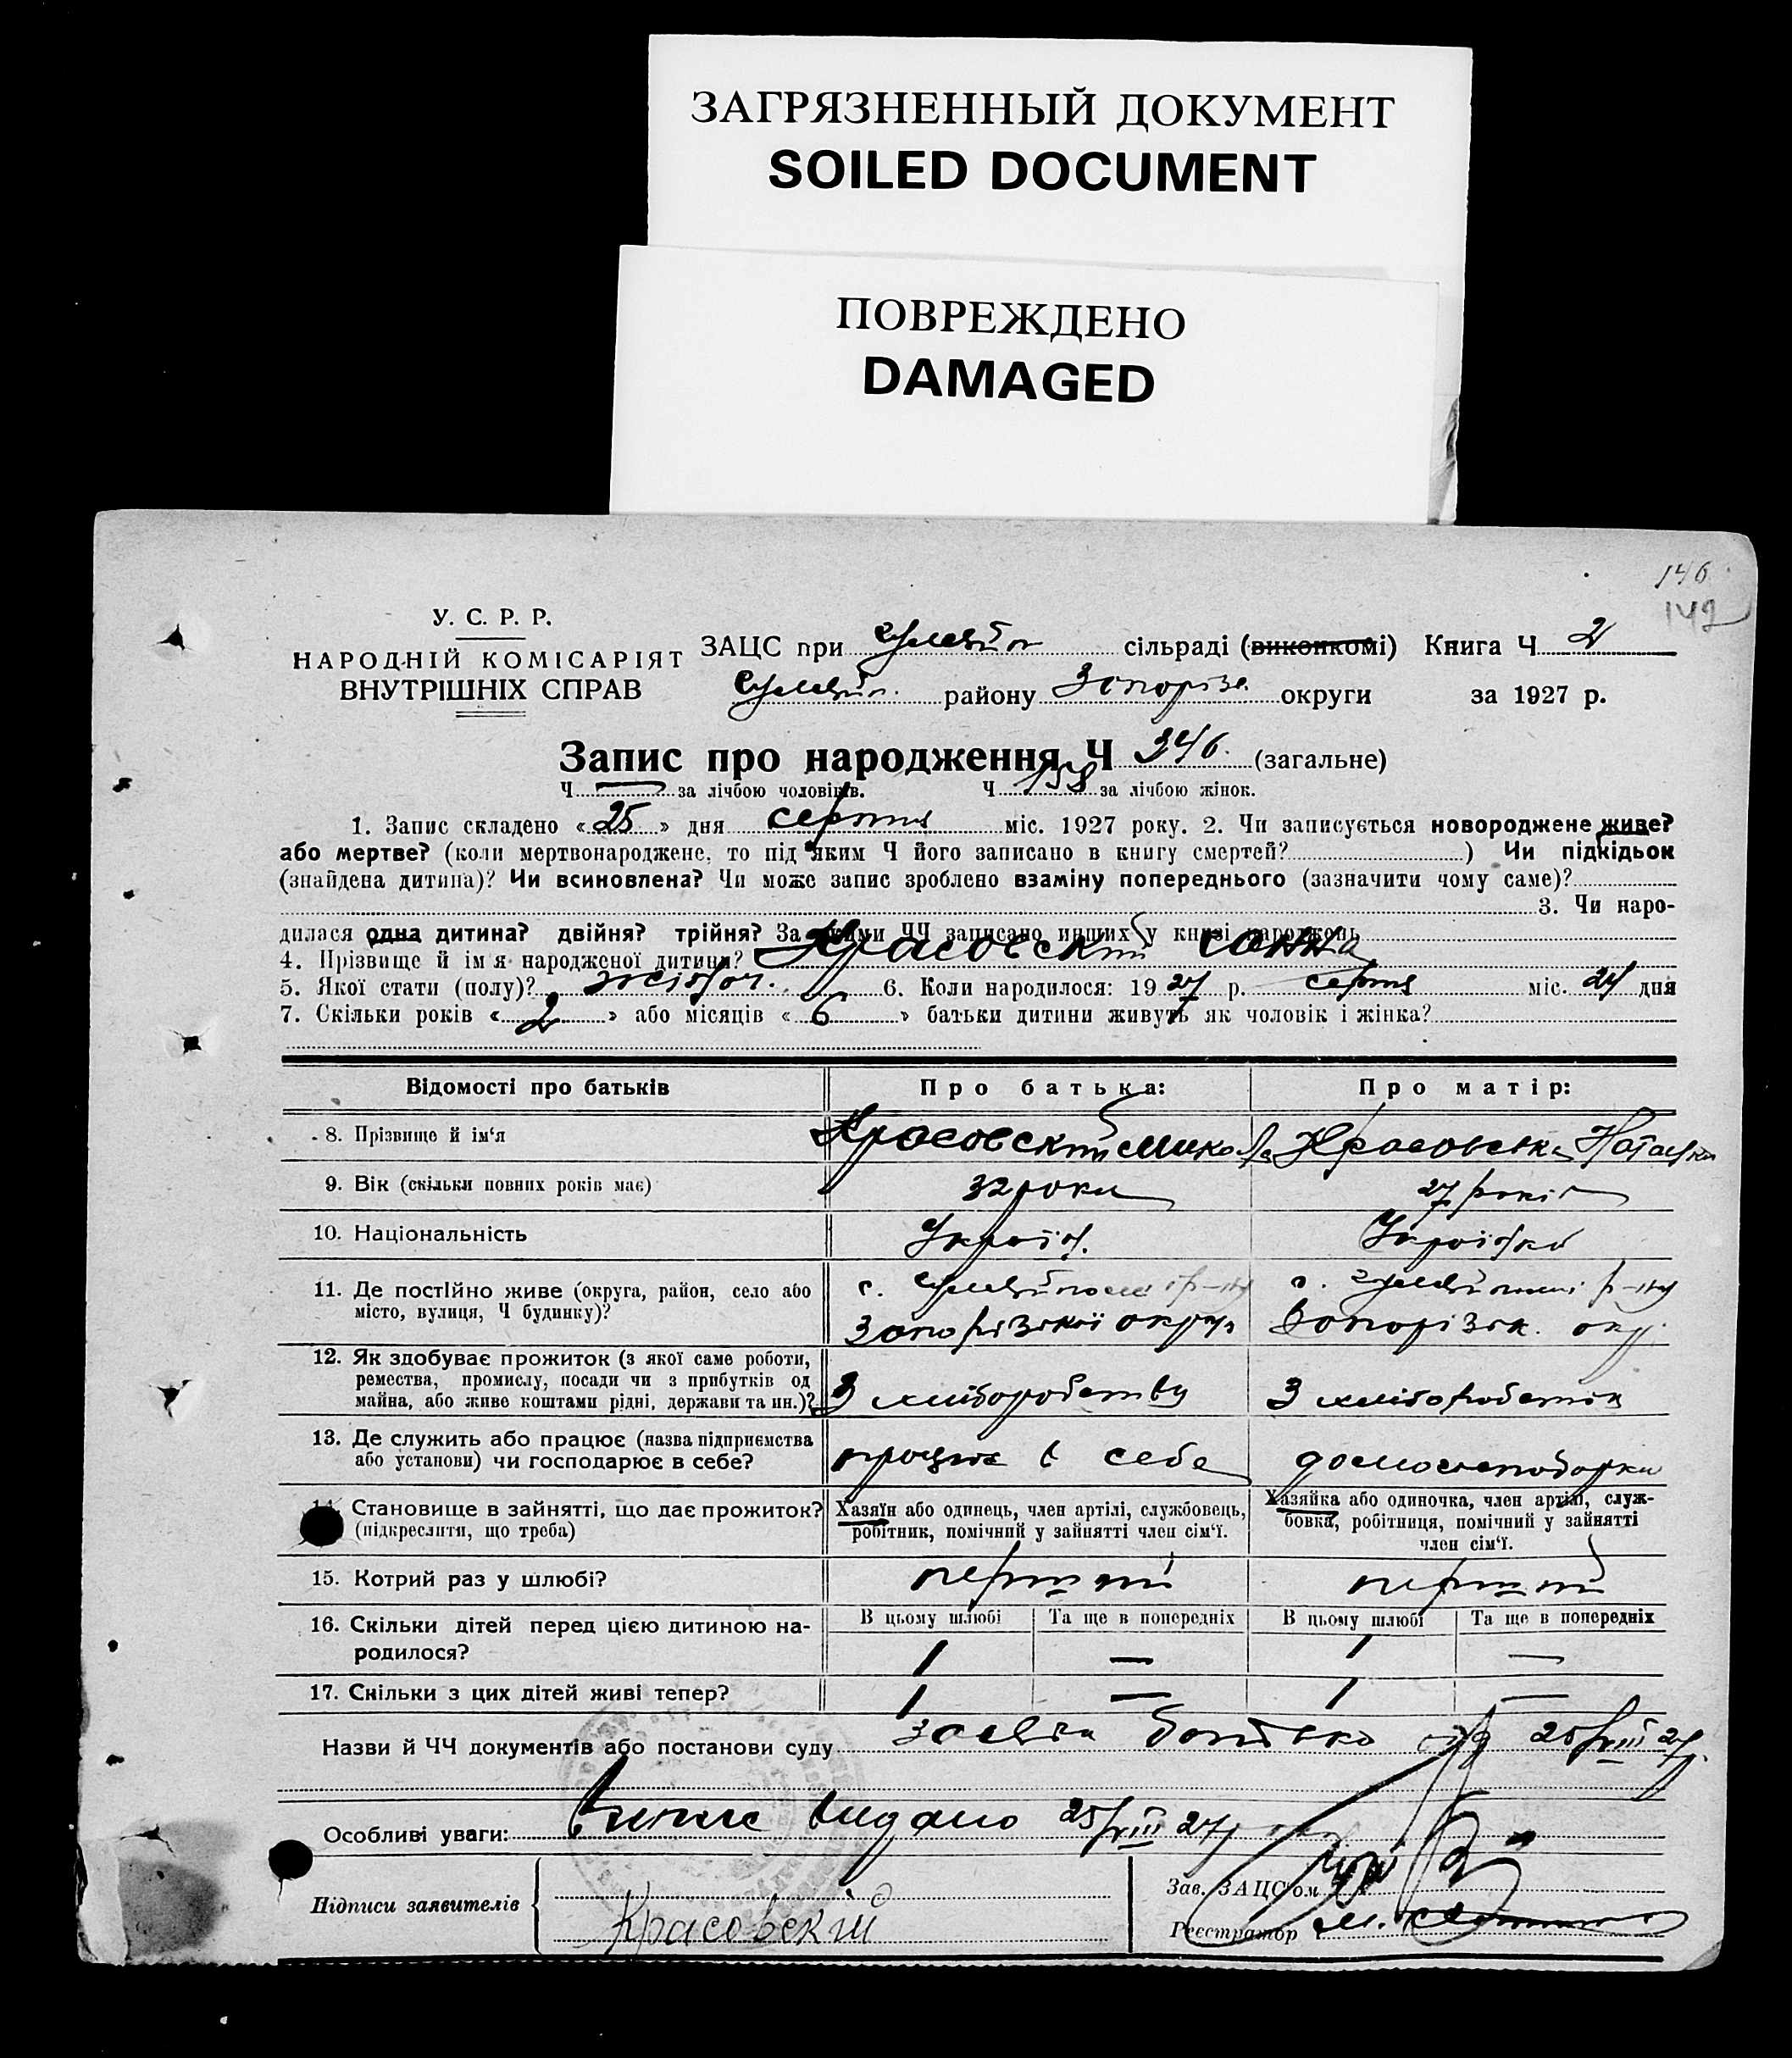 ЗАГРЯЗНЕННЫЙ ДОКУМЕНТ
SOILED DOCUMENT
ПОВРЕЖДЕНО
DAMAGED
146
142
У. С. Р. Р.
НАРОДНІЙ КОМІСАРІЯТ
ВНУТРІШНІХ СПРАВ
ЗАЦС при сільраді (виконкомі) Книга Ч 2
району Запорізь. округи за 1927 р.
Запис про народження Ч 346. (загальне)
Ч — за лічбою чоловіків. Ч 158 за лічбою жінок.
1. Запис складено «25» дня серпня міс. 1927 року. 2. Чи записується новороджене живе?
або мертве? (коли мертвонароджене, то під яким Ч його записано в книгу смертей? ) Чи підкідьок
(знайдена дитина)? Чи всиновлена? Чи може запис зроблено взаміну попереднього (зазначити чому саме)?
3. Чи наро-
дилася одна дитина? двійня? трійня? За якими ЧЧ записано инших у книзі народжень
4. Прізвище й ім'я народженої дитини? Красовский Ганна
5. Якої стати (полу)? жіноч. 6. Коли народилося: 1927 р. серпня міс. 24 дня
7. Скільки років «2» або місяців «6» батьки дитини живуть як чоловік і жінка?
Відомості про батьків Про батька: Про матір:
8. Прізвище й ім'я Красовский Микола Красовська Наталка
9. Вік (скільки повних років має) 32 роки 27 років
10. Національність Україн. Українка
11. Де постійно живе (округа, район, село або
місто, вулиця, Ч будинку)? с. р-ну Запорізької округи с. р-ну Запорізьк. окр.
12. Як здобуває прожиток (з якої саме роботи,
ремества, промислу, посади чи з прибутків од
майна, або живе коштами рідні, держави та ин.)? З хліборобства З хліборобства
13. Де служить або працює (назва підприємства
або установи) чи господарює в себе? працює в себе домогосподарка
14. Становище в зайнятті, що дає прожиток?
(підкреслити, що треба)
Хазяїн або одинець, член артілі, службовець,
робітник, помічний у зайнятті член сім'ї.
Хазяйка або одиночка, член артілі, служ-
бовка, робітниця, помічний у зайнятті
член сім'ї.
15. Котрий раз у шлюбі? перший перший
16. Скільки дітей перед цією дитиною на-
родилося?
В цьому шлюбі Та ще в попередніх В цьому шлюбі Та ще в попередніх
1 — 1 —
17. Скільки з цих дітей живі тепер? 1 — 1 —
Назви й ЧЧ документів або постанови суду заява батька від 25/VIII 27 р.
Особливі уваги: видано 25/VIII 27 р
Підписи заявителів
Красовскій
Зав. ЗАЦС'ом
Реєстратор М.